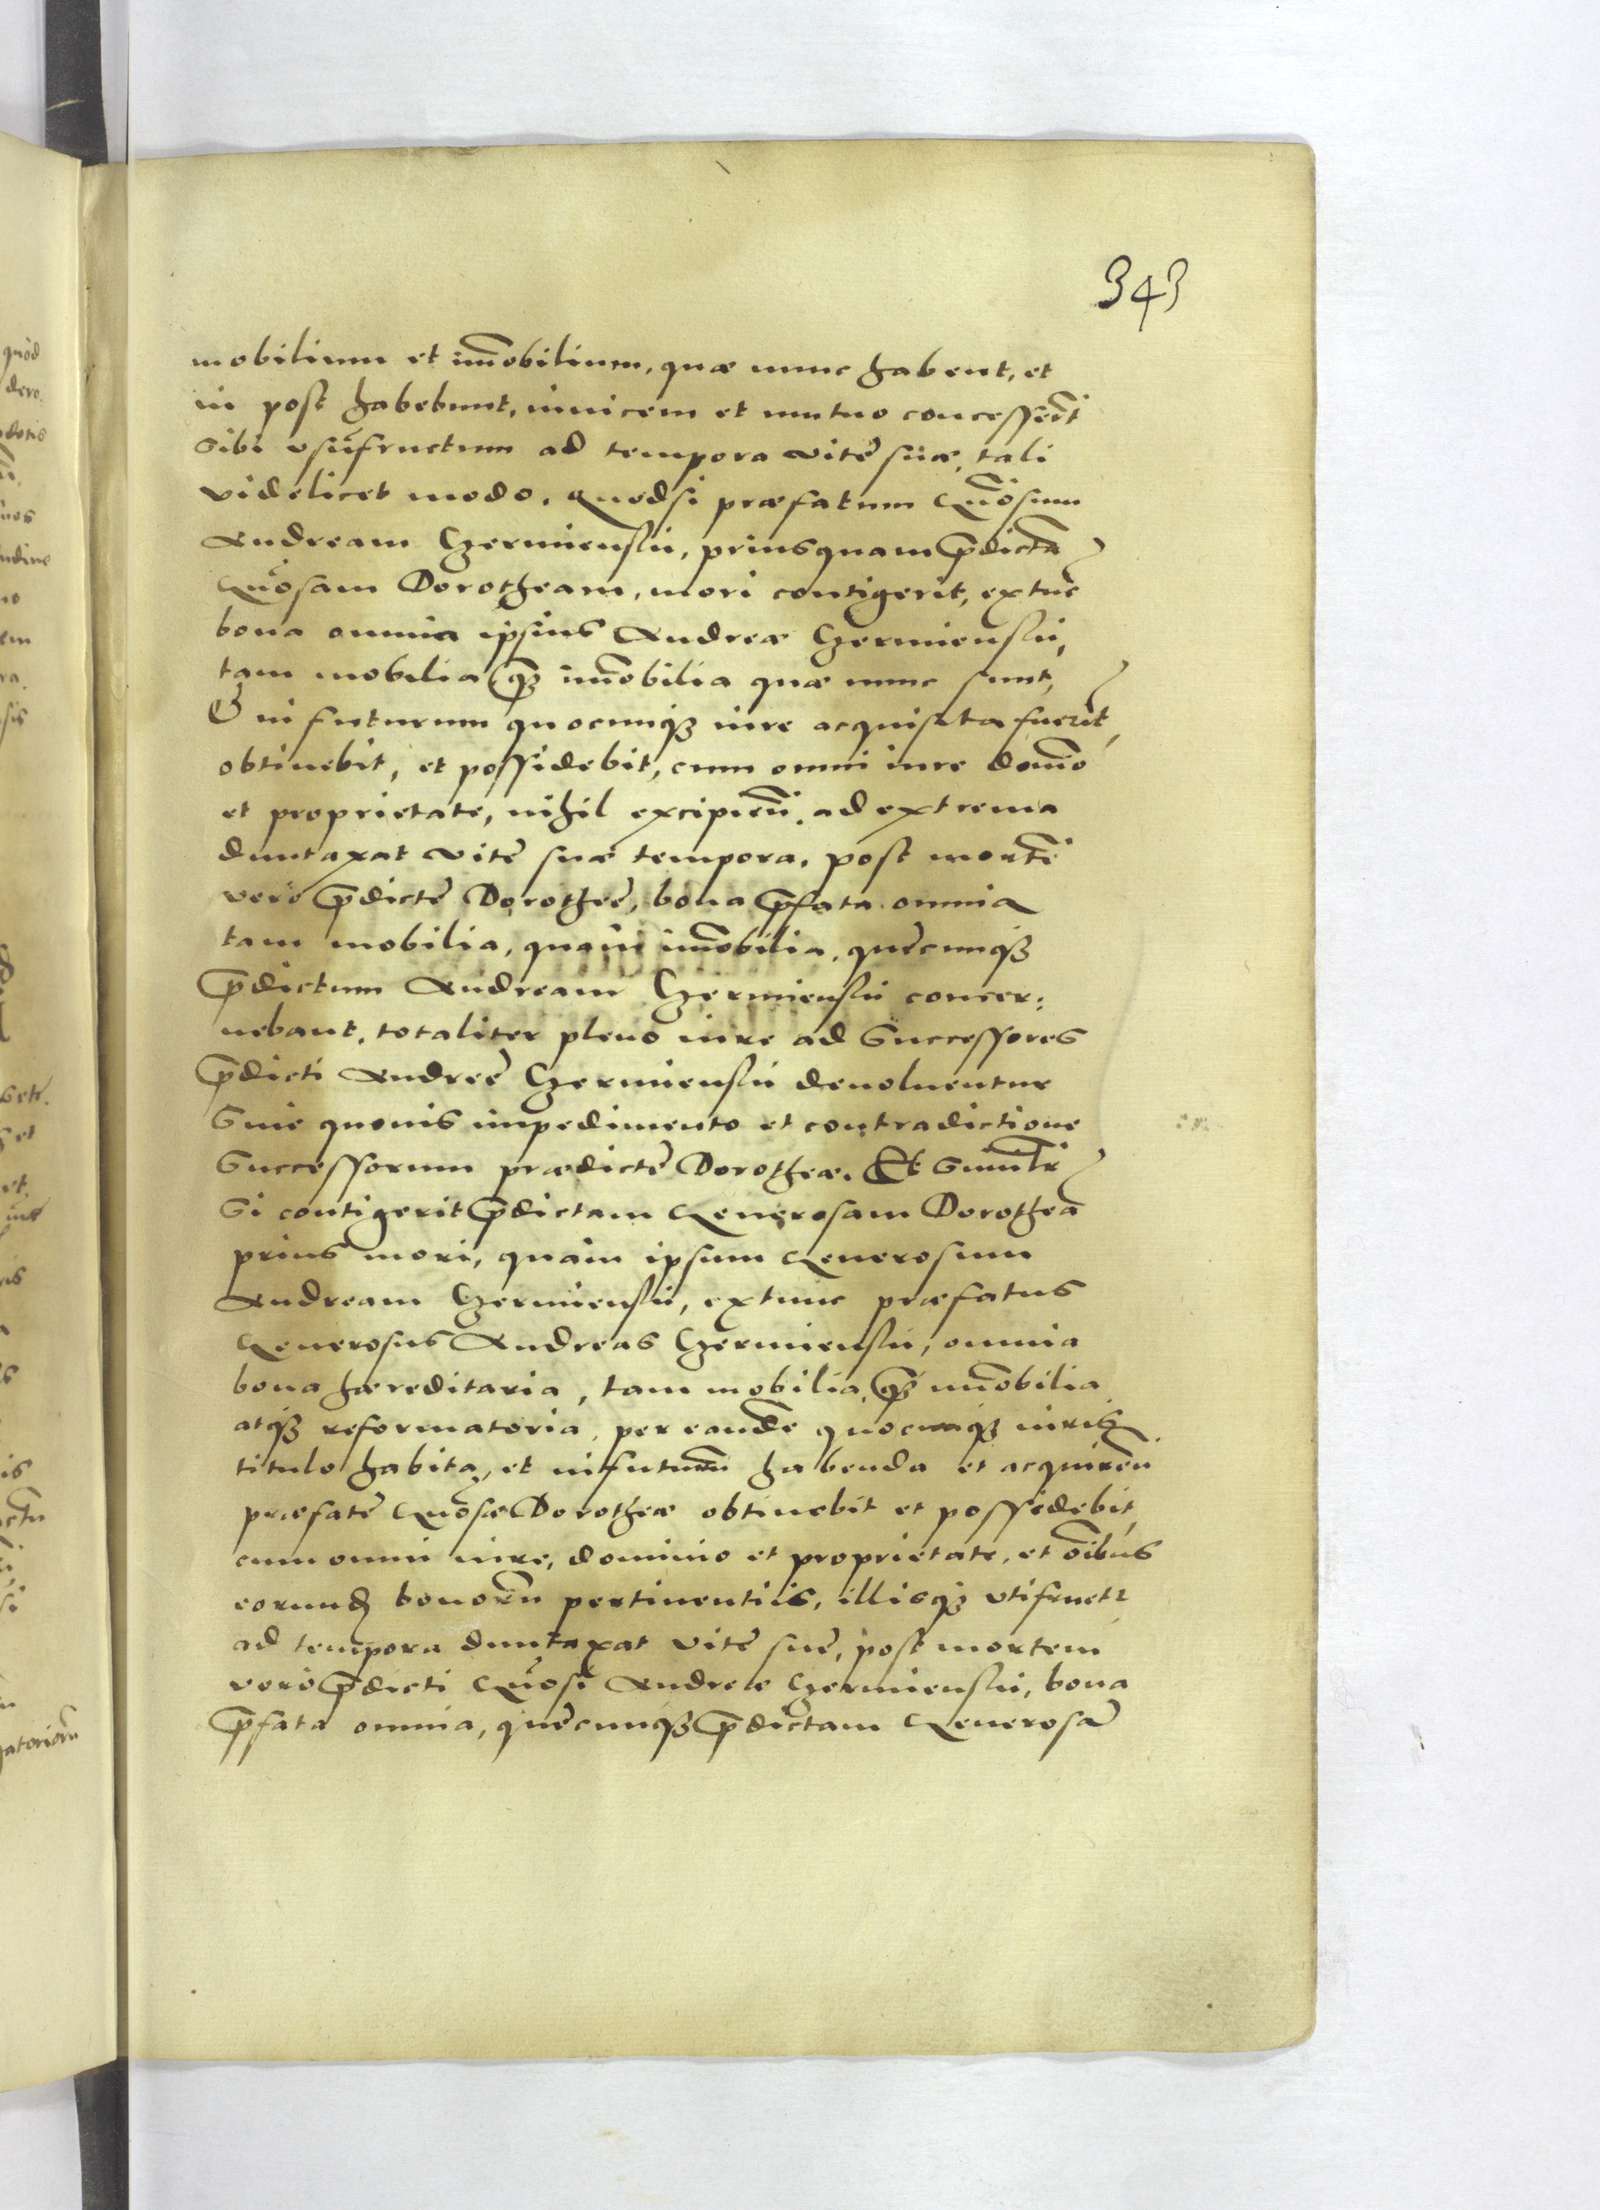 343
mobilium et im̄obilium, quæ nunc habent, et
in post habebunt, inuicem et mutuo concesser̄t
sibi vsūfructum ad tempora vitę suæ, tali
videlicet modo. Quodsi præfatum Gn̄osum
Andream Czermienskii, priusquam p̄dictā
Gn̄osam Dorotheam, mori contigerit, extūc
bona omnia ipsius Andreæ Czermienskii,
tam mobilia, q̄ꝫ im̄obilia quæ nunc sunt,
& in futurum quocunqꝫ iure acquisita fuerīt,
obtinebit, et possidebit, cum omni iure domīo
et proprietate, nihil excipieñ. ad extrema
duntaxat vitę suæ tempora. post mortē
vero p̄dictę Dorotheę, bona p̄fata omnia
tam mobilia, quam im̄obilia, quęcunqꝫ
p̄dictum Andream Czermienskii concer:
nebant, totaliter pleno iure ad Successores
p̄dicti Andreę Czermienskii deuoluentur
Sine quouis impedimento et contradictione
Successorum prædictę Dorotheæ. Et Simil̄r
Si contigerit p̄dictam Generosam Dorotheā
prius mori, quàm ipsum Generosum
Andream Czermienskii, extunc præfatus
Generosus Andreas Czermienskii, omnia
bona hæreditaria, tam mobilia, q̄ꝫ im̄obilia
atqꝫ reformatoria, per eandē quocunqꝫ iuris
titulo habita, et in futurū habenda et acquireñ
præfatę Gn̄osæ Dorotheæ obtinebit et possidebit,
cum omni iure, dominio et proprietate, et oībus
eorund̄ bonorū pertinentiis, illisqꝫ vtifruetr
ad tempora duntaxat vitę suę, post mortem
vero p̄dicti Gn̄osi Andreæ Czermienskii, bona
p̄fata omnia, quęcunqꝫ p̄dictam Generosā